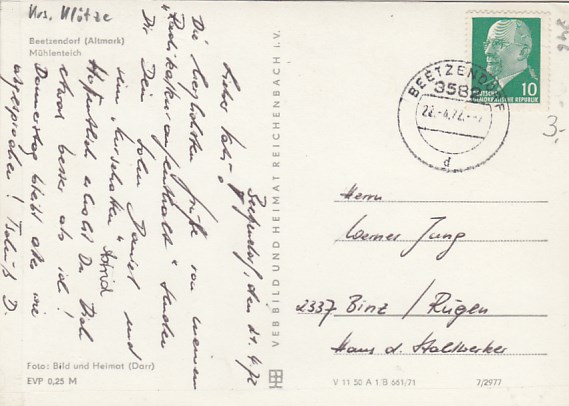 Krs. Klötze
Beetzendorf (Altmark)
Mühlenteich
Beetzendorf, den 21.4.72
Lieber
Die herzlichsten Grüße von meinem
"Radikalkuraufenthalt" senden
Dir Dein
Sohn Daniel und
sein "Kurschatten" Astrid
Hoffentlich erholst Du Dich
etwas besser als ich!
Donnerstag bleibt aber wie
abgesprochen! Tschüß D.
Foto: Bild und Heimat (Darr)
EVP 0,25 M
VEB BILD UND HEIMAT REICHENBACH i. V.
BEETZENDORF
3582
22.-4.72.
d
10
DEUTSCHE
DEMOKRATISCHE REPUBLIK
3,-
Herrn
Werner Jung
2337 Binz / Rügen
Haus d. Stahlwerker
V 11 50 A 1/B 661/71
7/2977